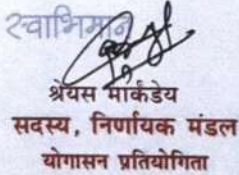 स्वाभिमान
श्रेयस मार्कंडेय
सदस्य, निर्णायक मंडल
योगासन प्रतियोगिता